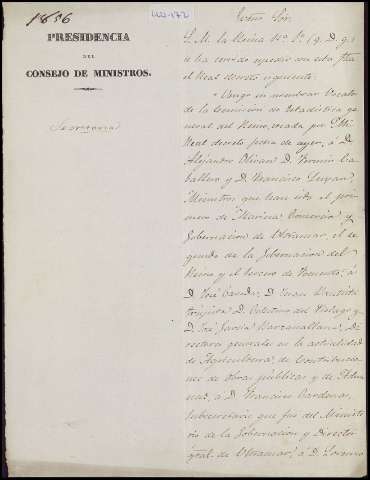 1856
PRESIDENCIA
DEL
CONSEJO DE MINISTROS.
Secretaria
Exmo Sor.
S. M. la Reina (q. D. g.)
se ha servido espedir en esta fha
el Real decreto siguiente.
"Vengo en nombrar Vocales
de la Comision de Estadistica ge
neral del Reino, creada por Mi
Real decreto fecha de ayer, á D.
Alejandro Olivan, D. Fermin Ca
ballero y D. Francisco Luxan,
Ministros que han sido el pri
mero de Marina, Comercio y
Gobernacion de Ultramar, el se
gundo de la Gobernacion del
Reino y el tercero de Fomento; á
D. José Caveda, D. Juan Bautista
Trupita, D. Celestino del Piélago y
D. José Garcia Barzanallana, Di
rectores generales en la actualidad
de Agricultura, de Contribucio
nes de obras públicas y de Adua
nas, á D. Francisco Cardenas,
Subsecretario que fué del Ministe
rio de la Gobernacion y Director
gral. de Ultramar; á D. Lorenzo